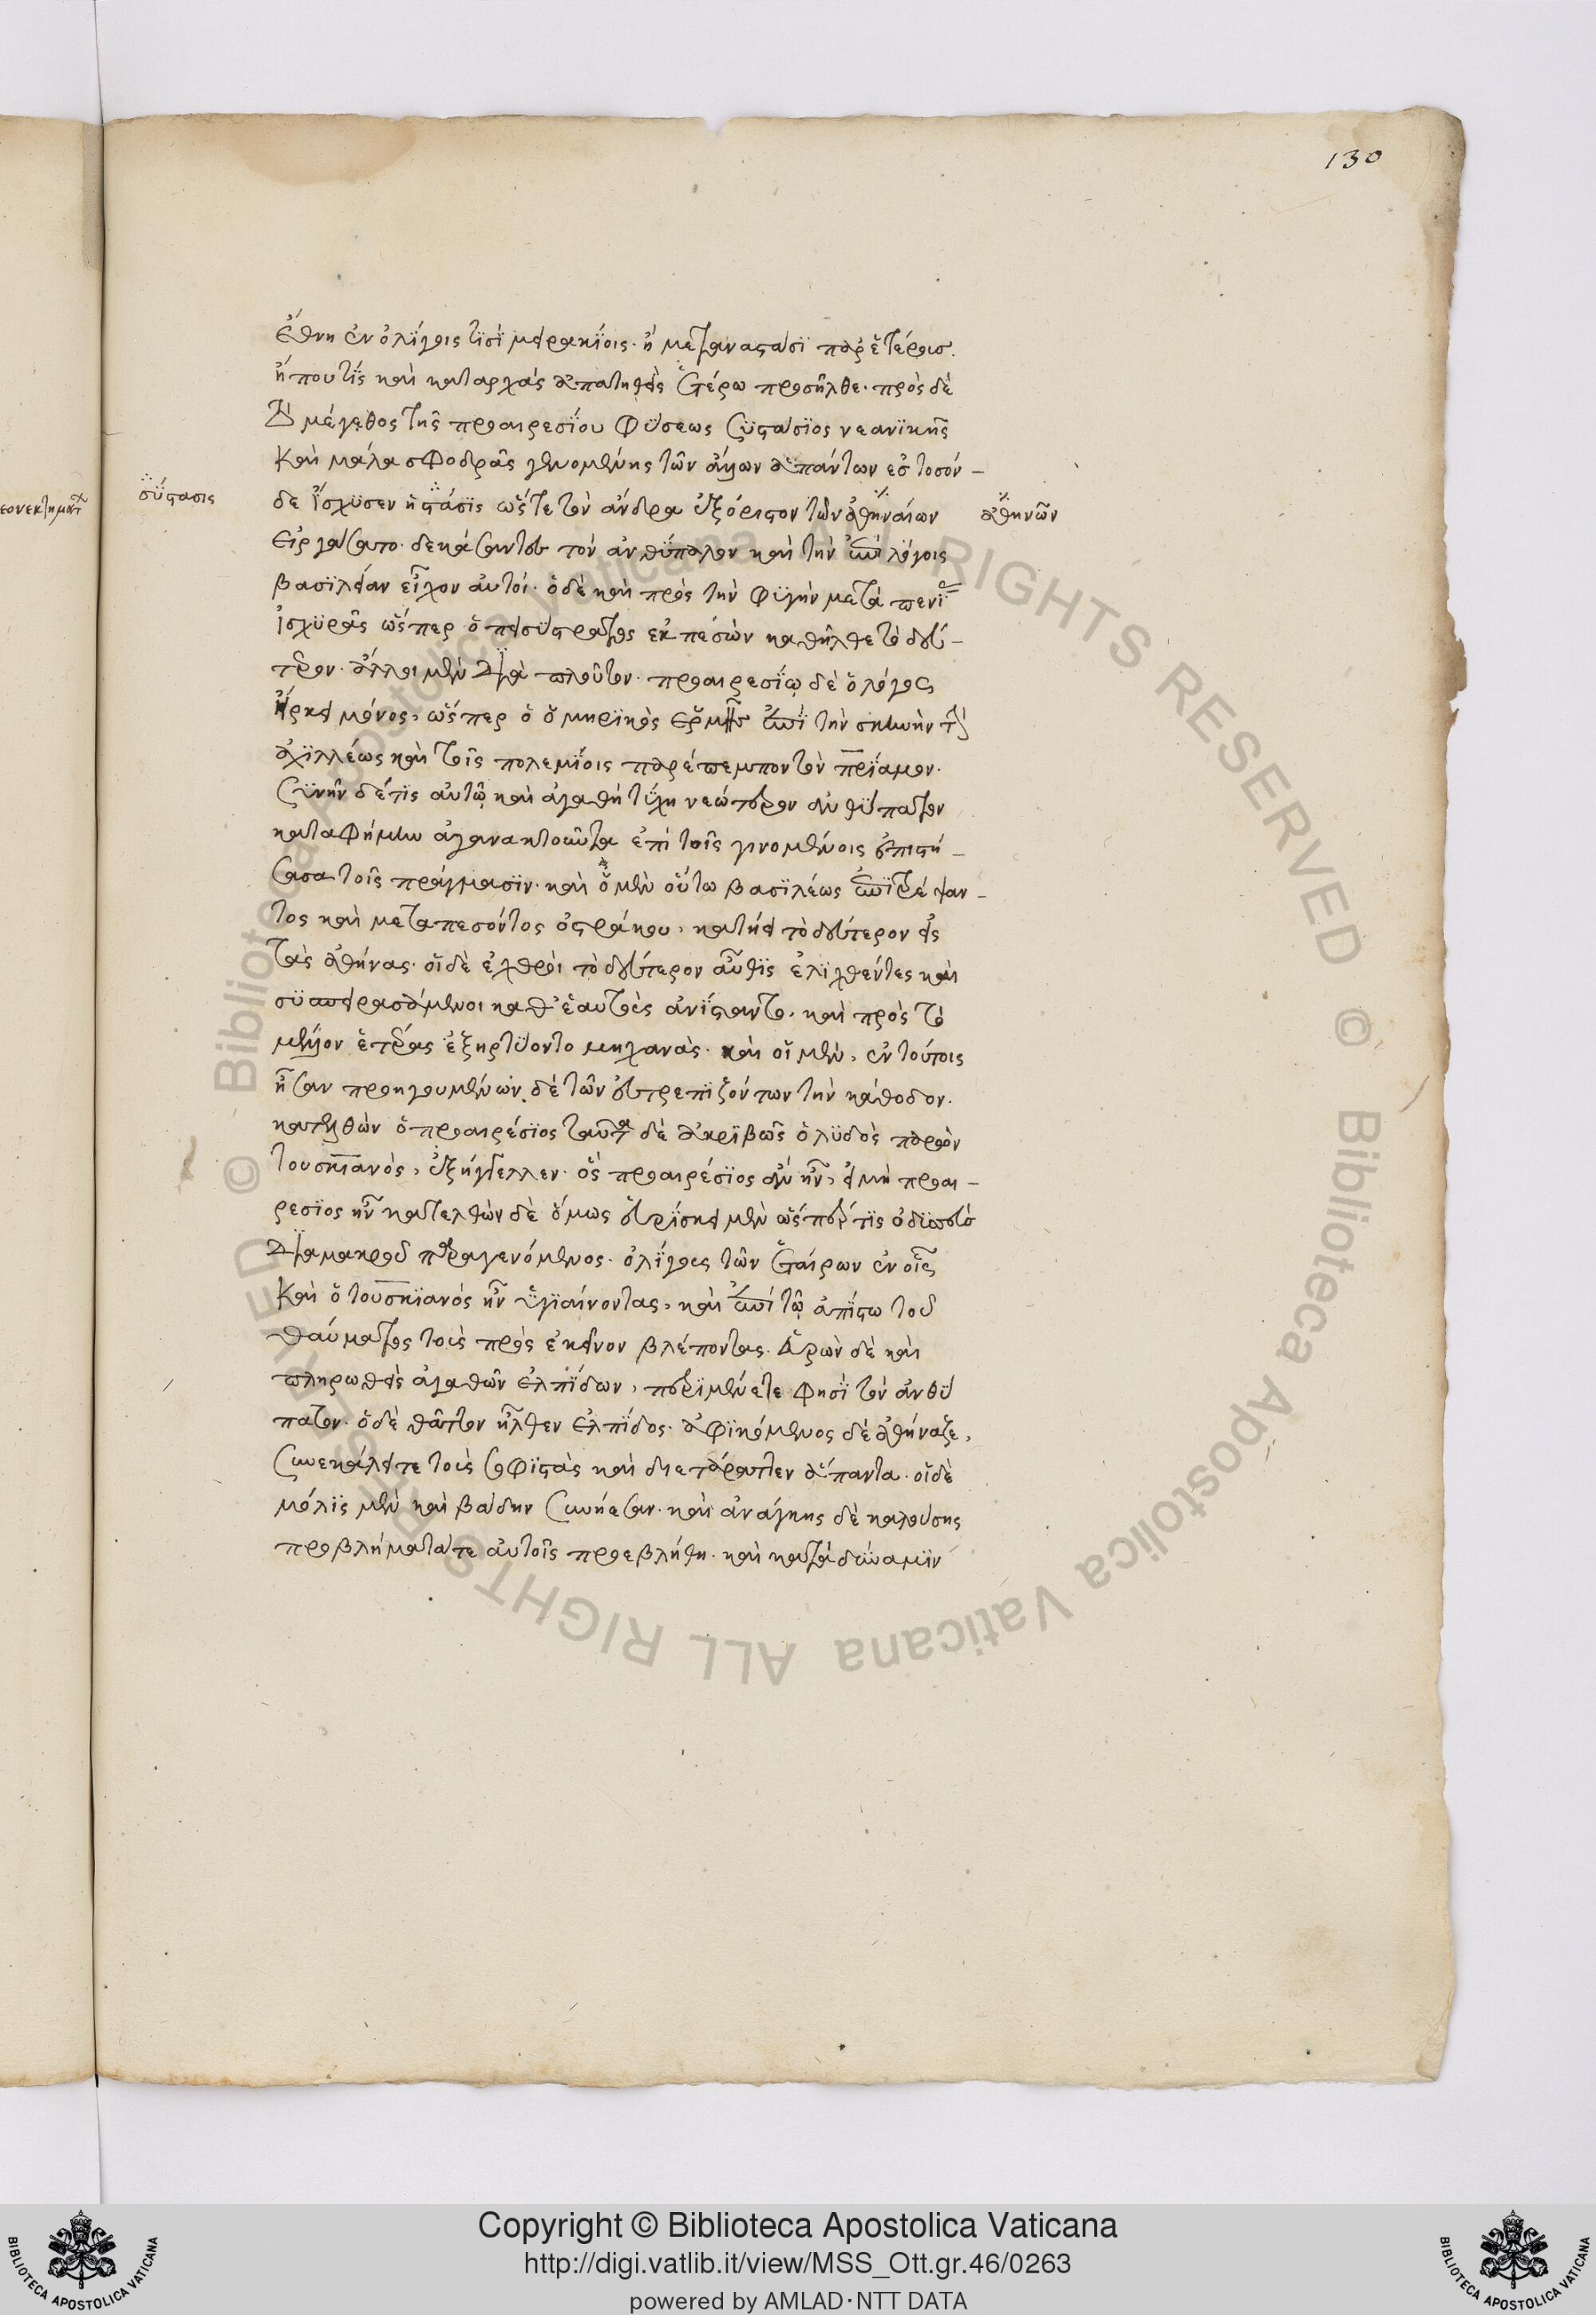 130
ἔθνη ἐν ὀλίγοις τισὶ μειρακίοις· ἢ μεταναστᾶσι παρ' ἑτέροις.
ἤ που τὶς καὶ καταρχὰς ἀπατηθεὶς ἑτέρω προσῆλθε· πρὸς δὲ
τὸ μέγεθος τῆς προαιρεσίου φύσεως συστάσιος νεανικῆς
καὶ μάλα σφοδρᾶς γενομένης τῶν ἄλλων ἁπάντων ἐς τοσόν-
δε ἴσχυσεν ἡ στάσις ὥστε τὸν ἄνδρα ἐξόριστον τῶν ἀθηναίων
σύστασις
ἀθηνῶν
εἰργάσαντο· δεκάσαντες τὸν ἀνθύπατον καὶ τὴν ἐπὶ λόγοις
βασιλείαν εἶχον αὐτοί· ὁ δὲ καὶ πρὸς τὴν φυγὴν μετὰ πενίας
ἰσχυρᾶς ὥσπερ ὁ πεισίστρατος ἐκπεσὼν κατῆλθε τὸ δεύ-
τερον· ἀλλ' οἱ μὲν διὰ πλοῦτον· προαιρεσίῳ δὲ ὁ λόγος
ἤρκει μόνος, ὥσπερ ὁ ὁμηρικὸς ἑρμῆς ἐπὶ τὴν σκηνὴν τοῦ
ἀχιλλέως καὶ τοῖς πολεμίοις παρέπεμπον τὸν πρίαμον.
συνῆν δέ τις αὐτῷ καὶ ἀγαθὴ τύχη νεώτερον ἀνθύπατον
κατὰ φήμην ἀγανακτοῦντα ἐπὶ τοῖς γινομένοις ἐπιστή-
σασα τοῖς πράγμασιν· καὶ ὁ μὲν οὕτω βασιλέως ἐπιτρέψαν-
τος καὶ μεταπεσόντος ὀστράκου, κατῄει τὸ δεύτερον εἰς
τὰς ἀθήνας· οἱ δὲ ἐχθροὶ τὸ δεύτερον αὖθις ἐλιχθέντες καὶ
συσπειρασάμενοι καθ' ἑαυτοὺς ἀνίσταντο· καὶ πρὸς τὸ
μέλλον ἑτέρας ἐξηρτύοντο μηχανάς· καὶ οἱ μὲν, ἐν τούτοις
ἦσαν προηγουμένων δὲ τῶν εὐτρεπιζόντων τὴν κάθοδον.
κατελθὼν ὁ προαιρέσιος ταῦτα δὲ ἀκριβῶς ὁ λυδὸς παρὼν
τουσκιανὸς, ἐξήγγελλεν· ὃς προαιρέσιος ἂν ἦν, εἰ μὴ προαι-
ρέσιος ἦν κατελθὼν δὲ ὅμως εὑρίσκει μὲν ὥσπερ τις ὀδυσσεὺς
διὰ μακροῦ παραγενόμενος· ὀλίγους τῶν ἑταίρων ἐν οἷς
καὶ ὁ τουσκιανὸς ἦν ὑγιαίνοντας, καὶ ἐπὶ τῷ ἀπίστω τοῦ
θαύματος τοὺς πρὸς ἐκεῖνον βλέποντας· εὑρὼν δὲ καὶ
πληρωθεὶς ἀγαθῶν ἐλπίδων, περιμένετε φησὶ τὸν ἀνθύ
πατον· ὁ δὲ θᾶττον ἦλθεν ἐλπίδος· ἀφικόμενος δὲ ἀθήναζε,
συνεκάλει τε τοὺς σοφιστὰς καὶ διετάραττεν ἅπαντα· οἱ δὲ
μόλις μὲν καὶ βάδην συνῄεσαν· καὶ ἀνάγκης δὲ καλούσης
προβλήματά τε αὐτοῖς προεβλήθη· καὶ κατὰ δύναμιν
Copyright © Biblioteca Apostolica Vaticana
http://digi.vatlib.it/view/MSS_Ott.gr.46/0263
powered by AMLAD·NTT DATA
BIBLIOTECA APOSTOLICA VATICANA
BIBLIOTECA APOSTOLICA VATICANA
© Biblioteca Apostolica Vaticana ALL RIGHTS RESERVED © Biblioteca Apostolica Vaticana ALL RIGHTS RESERVED